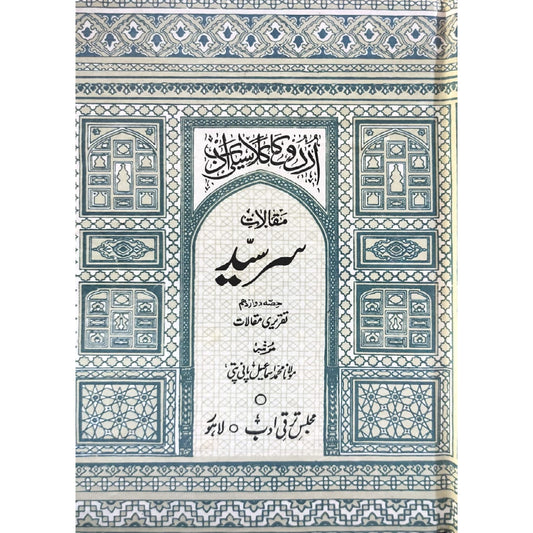 اردو کا کلاسیکی ادب
مقالاتِ
سرسیّد
حصہ دوازدہم
تقریری مقالات
مرتبہ
مولانا محمد اسماعیل پانی پتی
مجلس ترقی ادب ○ لاہور